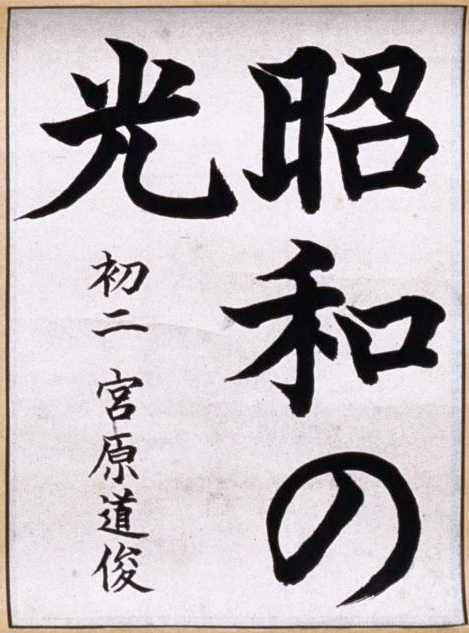 昭和の
光
初二 宮原道俊